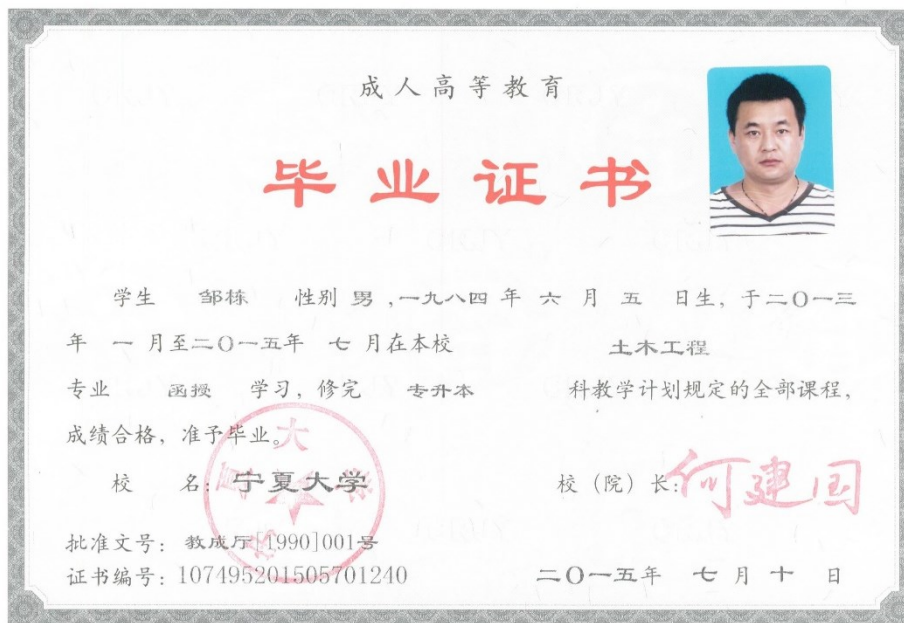 成人高等教育
毕业证书
学生 邹栋 性别 男 ,一九八四 年 六 月 五 日生, 于二〇一三
年 一 月至二〇一五年 七 月在本校 土木工程
专业 函授 学习, 修完 专升本 科教学计划规定的全部课程,
成绩合格, 准予毕业。
校 名: 宁夏大学
校（院）长: 何建国
批准文号: 教成厅[1990]001号
证书编号: 107495201505701240
二〇一五年 七 月 十 日